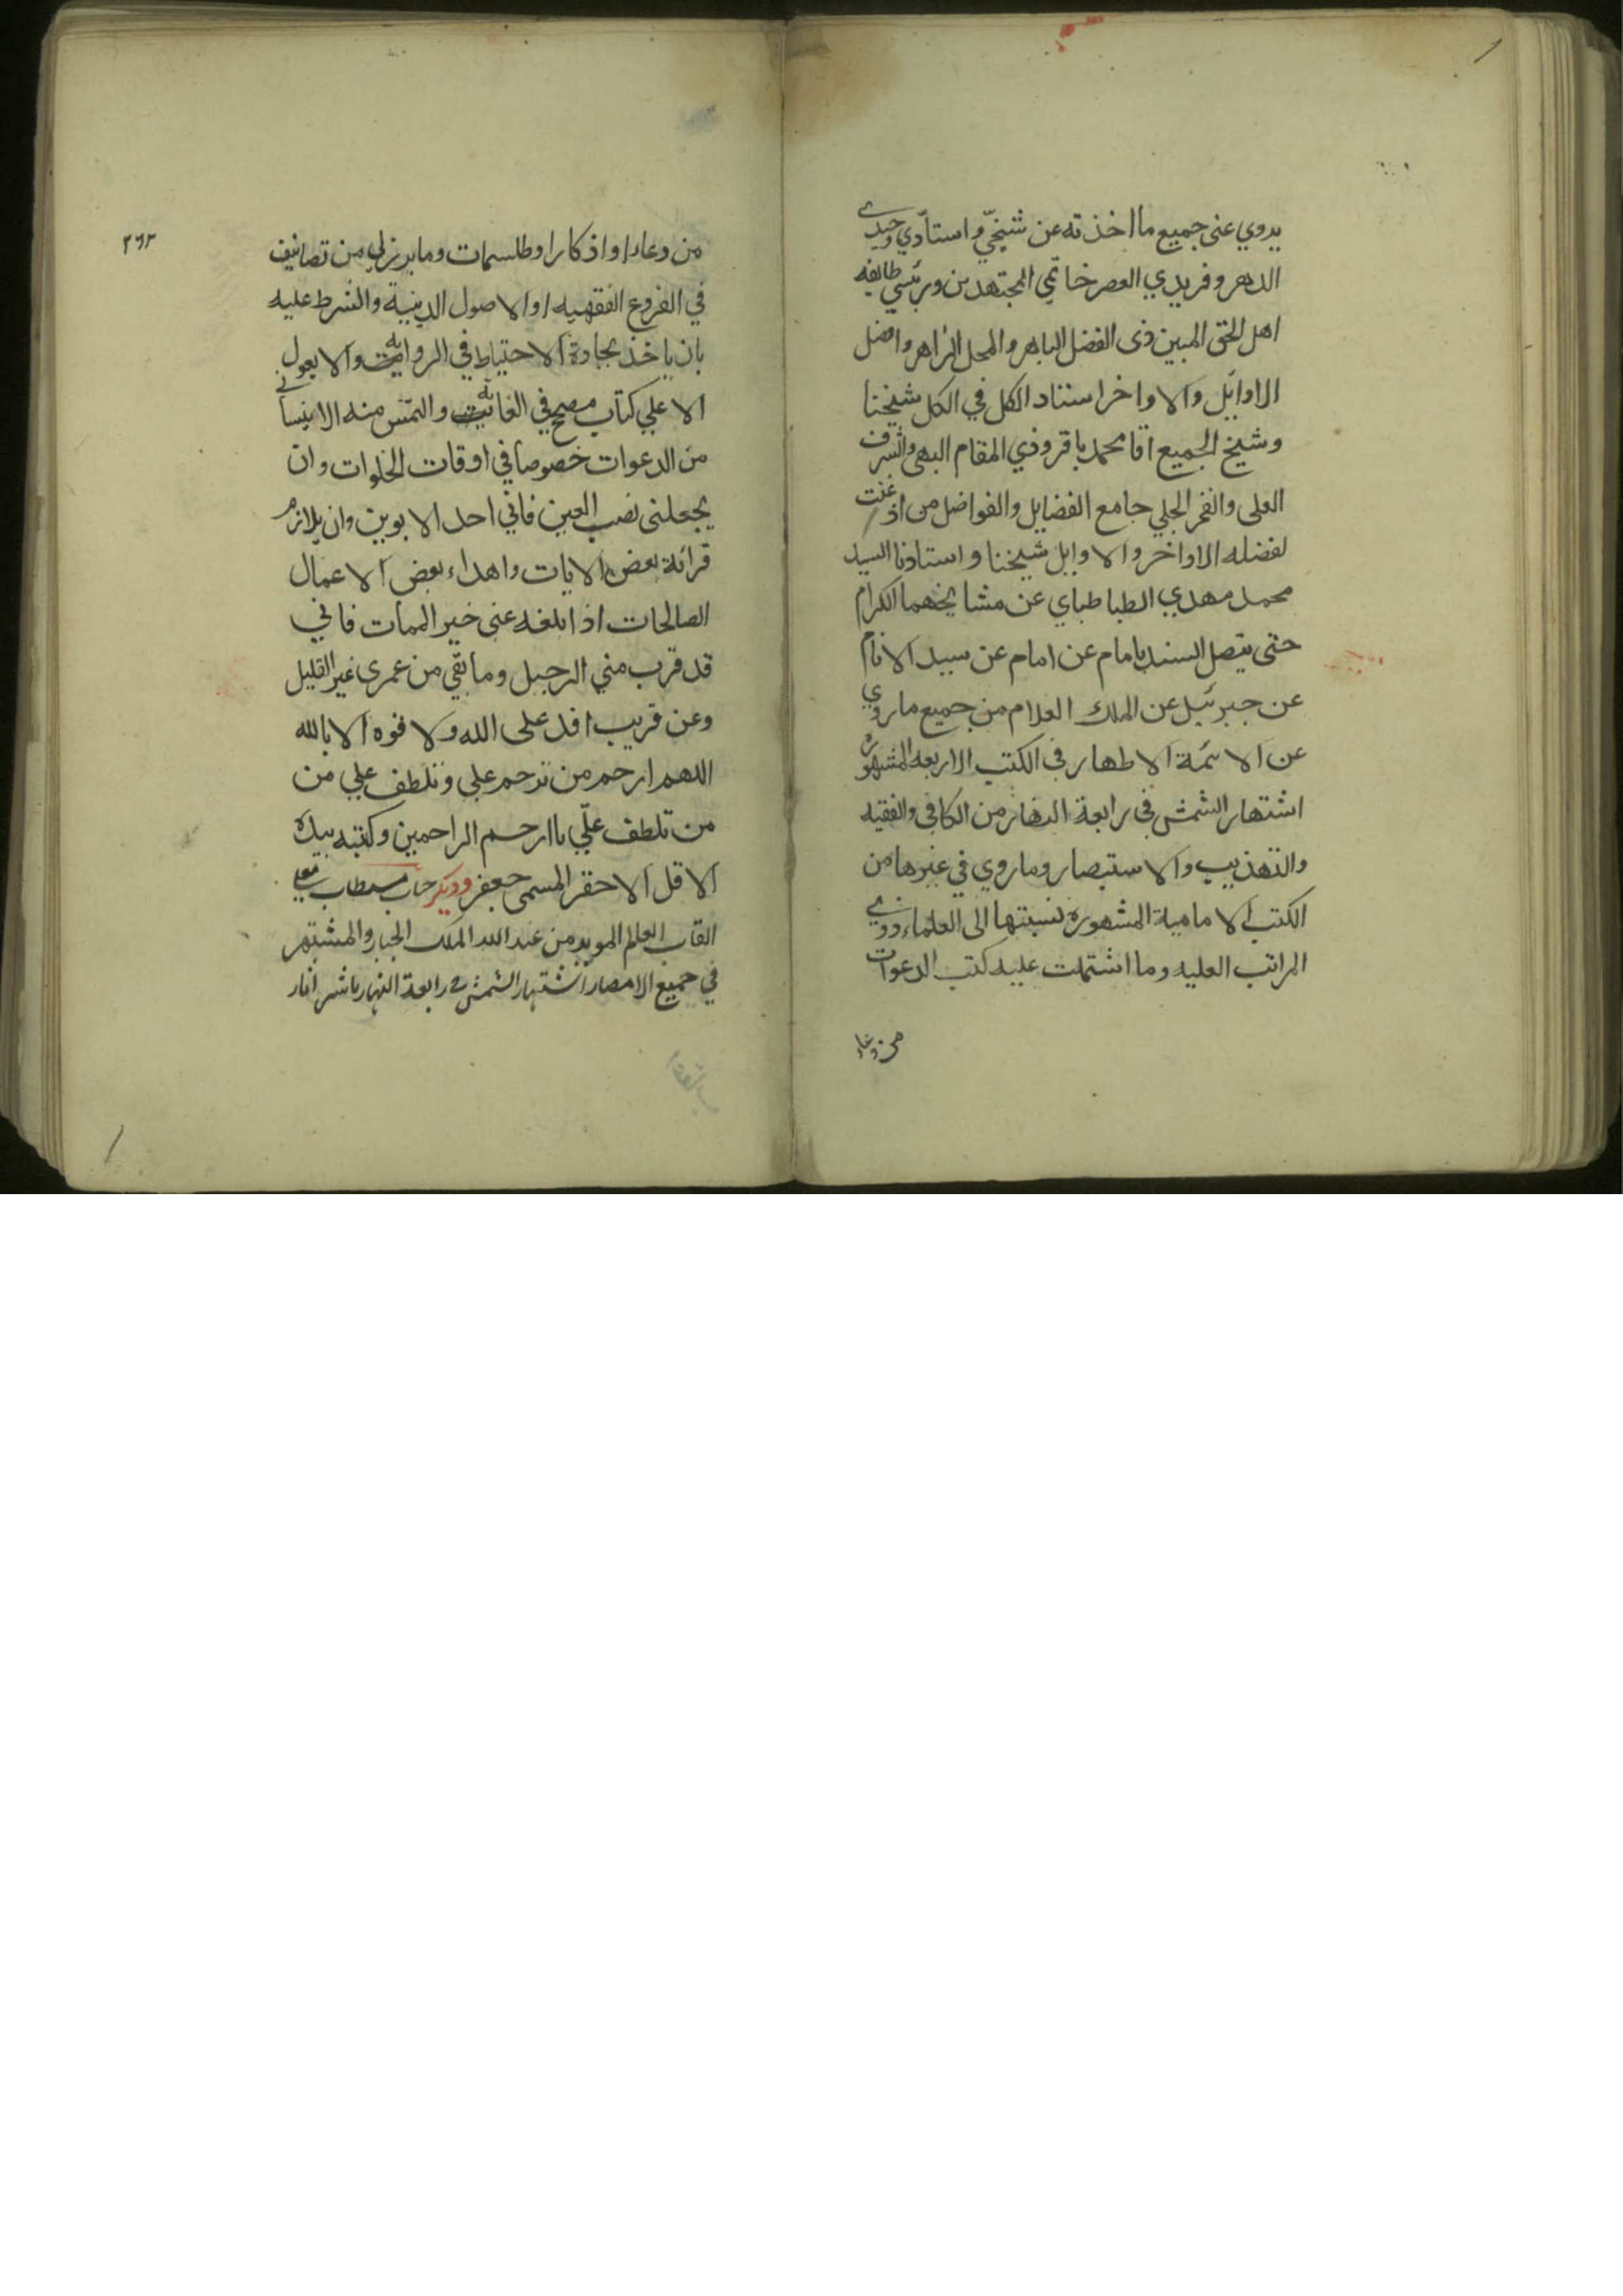 يروي عني جميع ما اخذته عن شيخيّ و استاديّ وحيدي
الدهر و فريدي العصر خاتمي المجتهدين ورئيسي طائفه
اهل الحق المبين ذى الفضل الباهر والمحل الزاهر وافضل
الاوايل والاواخر استناد الكل في الكل شيخنا
وشيخ الجميع اقا محمد باقر وذي المقام البهى والشرف
العلى والفخر الجلي جامع الفضايل والفواضل من اذعنت
لفضله الاواخر والاوايل شيخنا و استادنا السيد
محمد مهدي الطباطباي عن مشايخهما الكرام
حتى يتصل السند بامام عن امام عن سيد الانام
عن جبرئيل عن الملك العلام من جميع ما روي
عن الائمة الاطهار في الكتب الاربعه المشهوره
اشتهار الشمس في رابعة النهار من الكافي والفقيه
والتهذيب والاستبصار وما روي في غيرها من
الكتب الامامية المشهوره نسبتها الى العلماء ذوي
المراتب العليه وما اشتملت عليه كتب الدعوات
من دعاء
٢٦٣
من دعاء او اذكار او طلسمات وما برز لي من تصانيف
في الفروع الفقهيه او الاصول الدينية والشرط عليه
بان ياخذ بجادة الاحتياط في الروايه والا يعول
الا علي كتاب مصحح في الغايه والتمس منه الا ينساني
من الدعوات خصوصا في اوقات الخلوات وان
يجعلنى نصب العين فاني احد الابوين وان يلازم
قرائة بعض الايات واهداء بعض الاعمال
الصالحات اذا بلغه عنى خبر الممات فاني
قد قرب مني الرحيل وما بقي من عمري غير القليل
وعن قريب افد على الله ولا قوه الا بالله
اللهم ارحم من ترحم علي وتلطف علي من
من تلطف علّي يا ارحم الراحمين وكتبه بيده
الاقل الاحقر المسمى جعفر وديكر جناب مستطاب معلى
القاب العالم المويد من عند الله الملك الجبار والمشتهر
في جميع الامصار اشتهار الشمس في رابعة النهار ناشر اثار